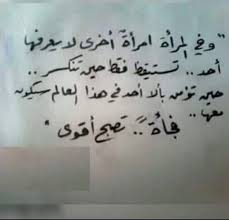 "وفي المرأة امرأةً أخرى لا يعرفها
أحد .. تستيقظ فقط حين تنكسر ..
حين تؤمن بألا أحد في هذا العالم سيكون
معها ..
فجأةً .. تصبح أقوى "